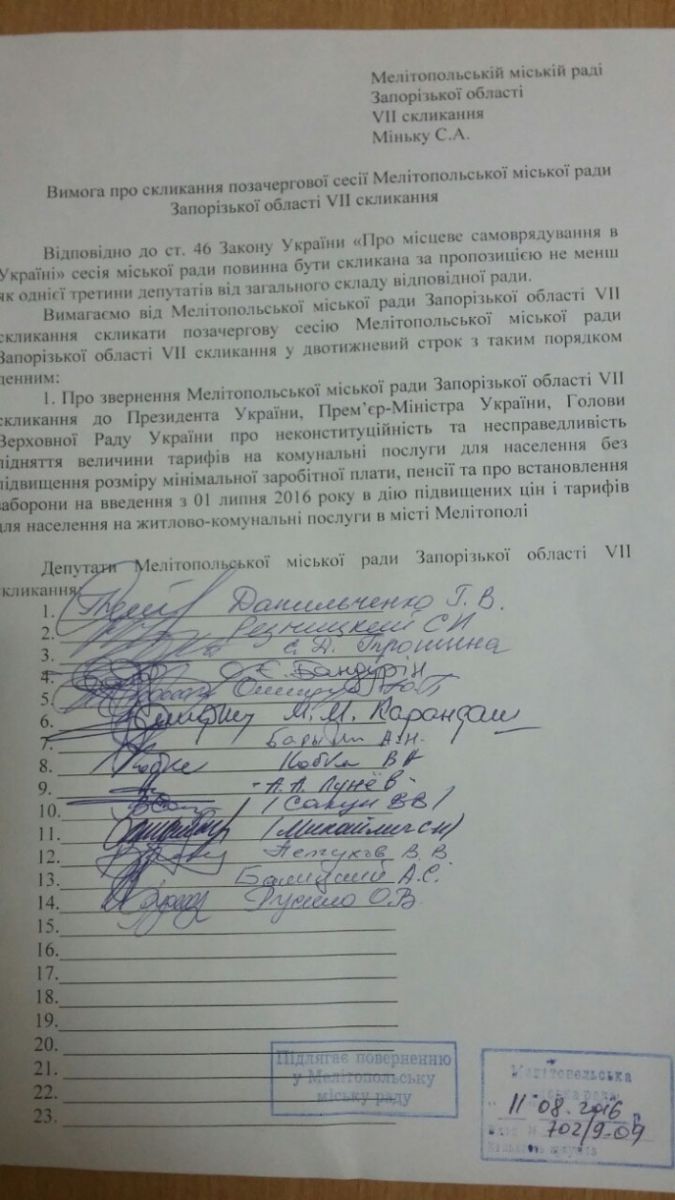 Мелітопольській міській раді
Запорізької області
VII скликання
Міньку С.А.
Вимога про скликання позачергової сесії Мелітопольської міської ради
Запорізької області VII скликання
Відповідно до ст. 46 Закону України «Про місцеве самоврядування в
Україні» сесія міської ради повинна бути скликана за пропозицією не менш
як однієї третини депутатів від загального складу відповідної ради.
Вимагаємо від Мелітопольської міської ради Запорізької області VII
скликання скликати позачергову сесію Мелітопольської міської ради
Запорізької області VII скликання у двотижневий строк з таким порядком
денним:
1. Про звернення Мелітопольської міської ради Запорізької області VII
скликання до Президента України, Прем’єр-Міністра України, Голови
Верховної Раду України про неконституційність та несправедливість
підняття величини тарифів на комунальні послуги для населення без
підвищення розміру мінімальної заробітної плати, пенсії та про встановлення
заборони на введення з 01 липня 2016 року в дію підвищених цін і тарифів
для населення на житлово-комунальні послуги в місті Мелітополі
Депутати Мелітопольської міської ради Запорізької області VII
скликання:
1. Данильченко Г. В.
2. Резницкий С И
3. Є. А. Прошина
4. О.Є. Бандурін
5.
6. М. М. Карандаш
7. А.Н.
8. Кобка В
9. А. А. Лунёв
10. (Сакун ВВ)
11. (Михайлич
12. Петухов В. В.
13. Балицкий А.С.
14. О.В.
15.
16.
17.
18.
19.
20.
21.
22.
23.
Підлягає поверненню
у Мелітопольську
міську раду
Мелітопольська
міська рада
11 08. 2016
702/9-09